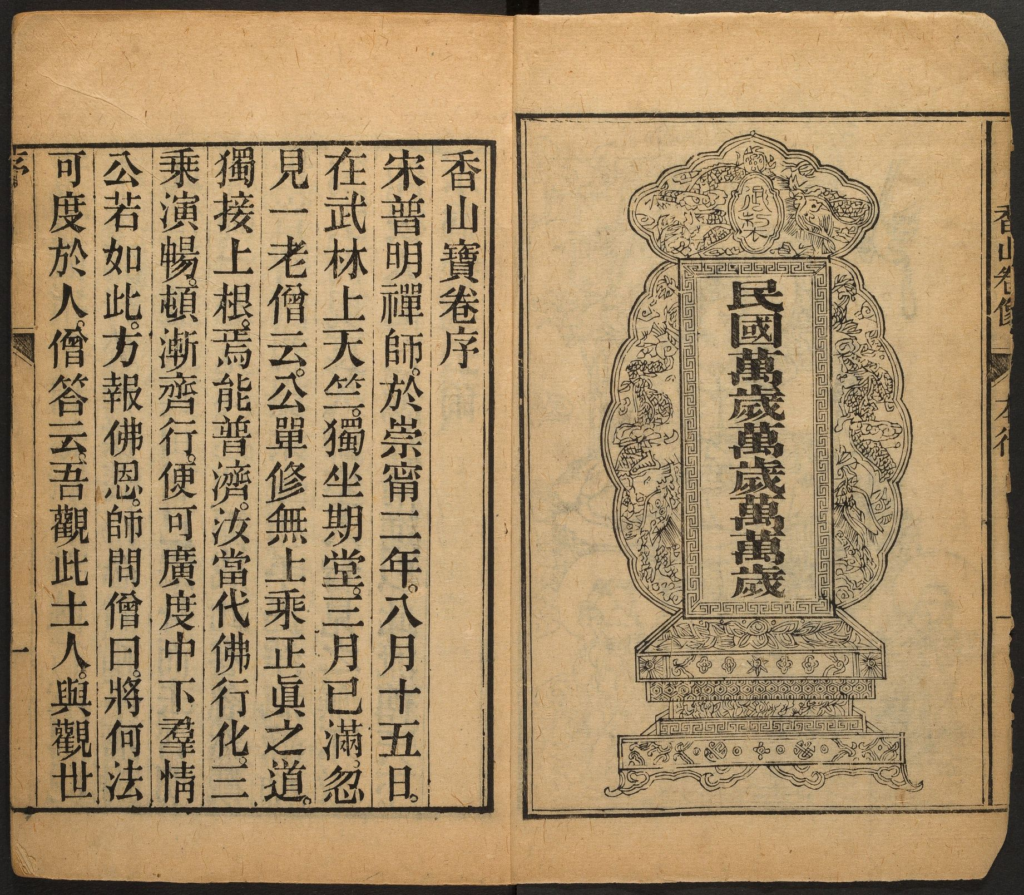 香山卷像
民國萬歲萬歲萬萬歲
香山寶卷序
宋普明禪師。於崇甯二年。八月十五日。
在武林上天竺。獨坐期堂。三月已滿。忽
見一老僧云。公單修無上乘正眞之道。
獨接上根。焉能普濟。汝當代佛行化。三
乘演暢。頓漸齊行。便可廣度中下羣情
公若如此。方報佛恩。師問僧曰。將何法
可度於人。僧答云。吾觀此土人。與觀世
序
一